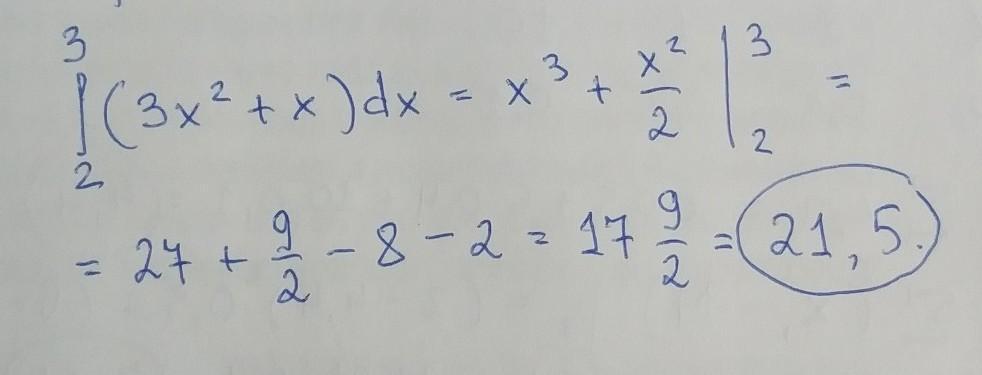 ∫₂³ (3x² + x)dx = x³ + x²/2 |₂³ =
= 27 + 9/2 - 8 - 2 = 17 9/2 = 21,5.